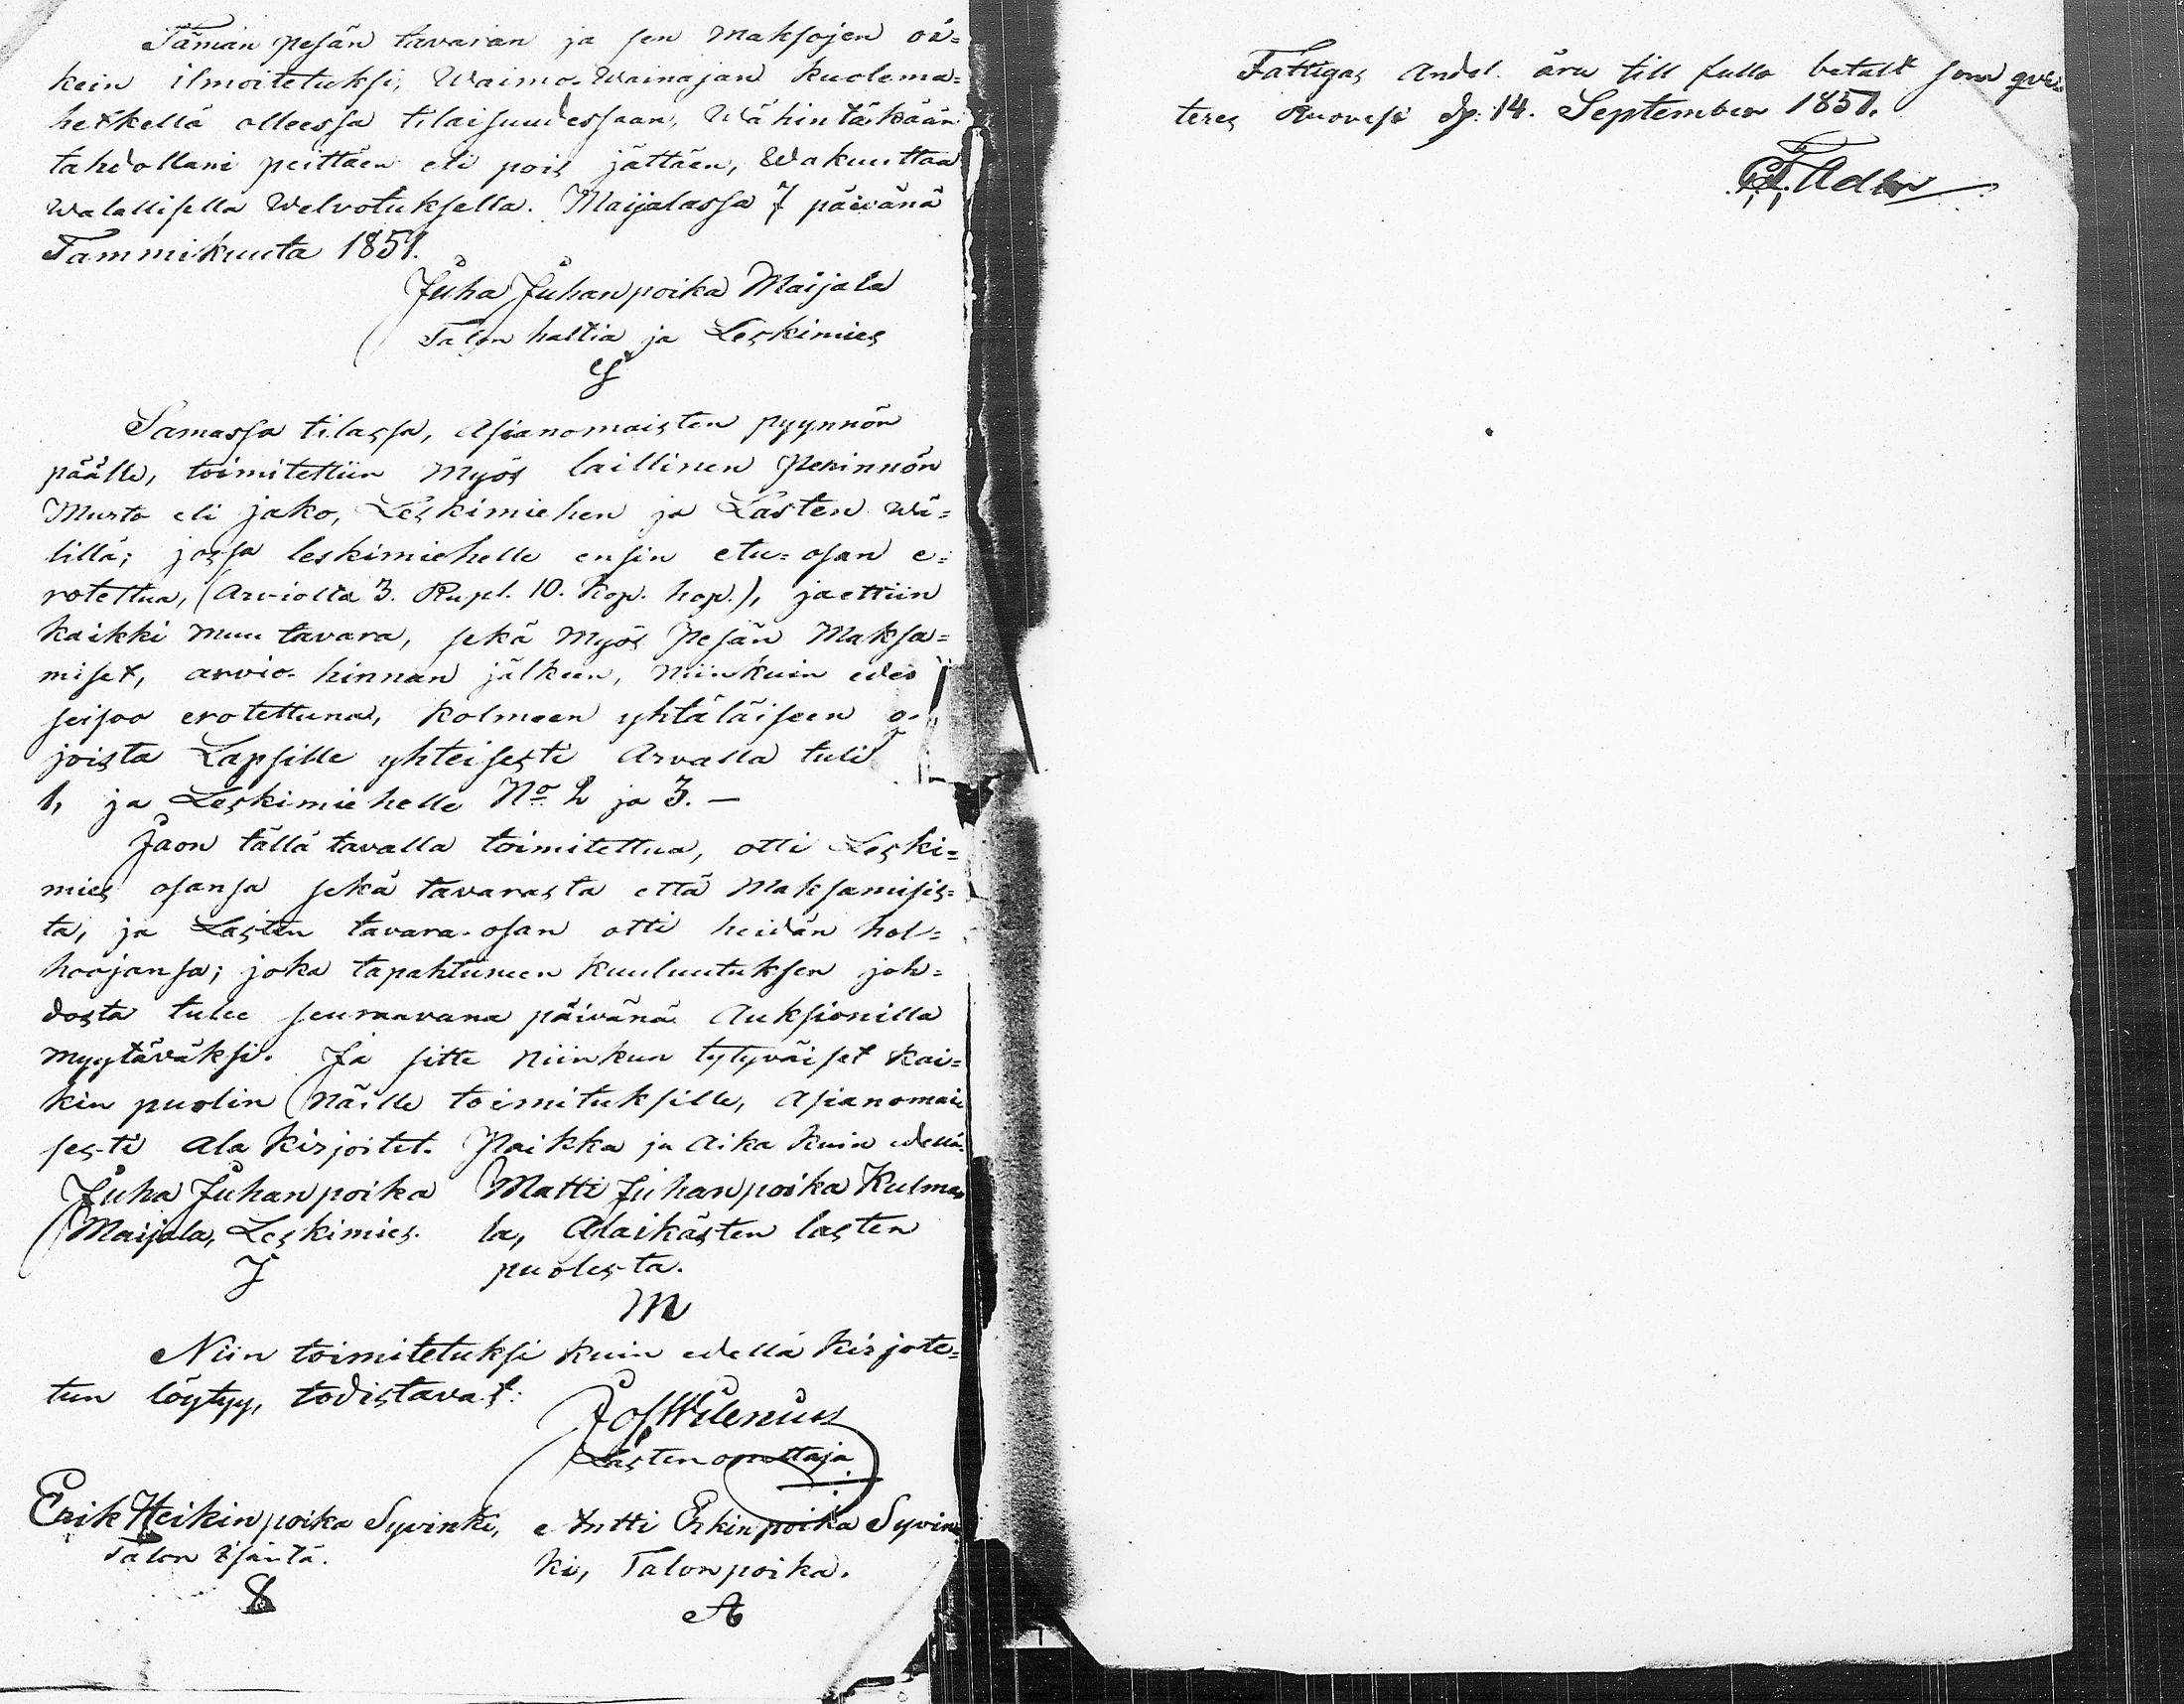 Tämän pesän tavaran ja sen maksojen oi=
kein ilmoitetuksi, Waimo-Wainajan kuolema=
hetkellä olleessa tilaisuudessaan, Wähintäkään
tahdollani peittäen eli pois jättäen, Wakuuttaa
Walallisella Welvotuksella. Maijalassa 7 päivänä
Tammikuuta 1851.
Juha Juhanpoika Maijala
Talon haltia ja Leskimies
Samassa tilassa, Asianomaisten pyynnön
päälle, toimitettiin Myös laillinen Perinnön
Murto eli jako, Leskimiehen ja Lasten wä=
lillä; jossa leskimiehelle ensin etu=osan e=
rotettua, (Arviolta 3. Rupl. 10. Kop. hop.), jaettiin
kaikki muu tavara, sekä Myös Pesän Maksa=
miset, arvio-hinnan jälkeen, niinkuin edes
seisoo erotettuna, kolmeen yhtäläiseen
joista Lapsille yhteisesti Arvalla tuli
1, ja Leskimiehelle No 2 ja 3. —
Jaon tällä tavalla toimitettua, otti Leski=
mies osansa sekä tavarasta että Maksamisis=
ta, ja Lasten tavara-osan otti heidän hol=
hoojansa; joka tapahtuneen kuuluutuksen joh=
dosta tulee seuraavana päivänä Auksionilla
myytäväksi. Ja sitte niinkun tytyväiset kai=
kin puolin Näille toimituksille, Asianomai
sesti Ala kirjoitet. Paikka ja Aika kuin edellä.
Juha Juhanpoika Maijala, Leskimies.
J
Matti Juhanpoika Kulma
la, Alaikästen lasten
puolesta.
M
Niin toimitetuksi kuin edellä kirjote=
tun löytyy, todistavat:
Jos Wilenius
Lasten omettaja
Erik Heikinpoika Syvinki,
Talon Isäntä.
Antti Erkinpoika Syvin
ki, Talonpoika.
A
Fattigas Andel. äro till fullo betalt som qvit=
teres Ruovesi d: 14. September 1851.
Adler